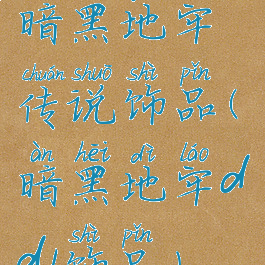 暗黑地牢
chuán shuō shì pǐn
传说饰品(
àn hēi dì láo
暗黑地牢d
shì pǐn
d(饰品)